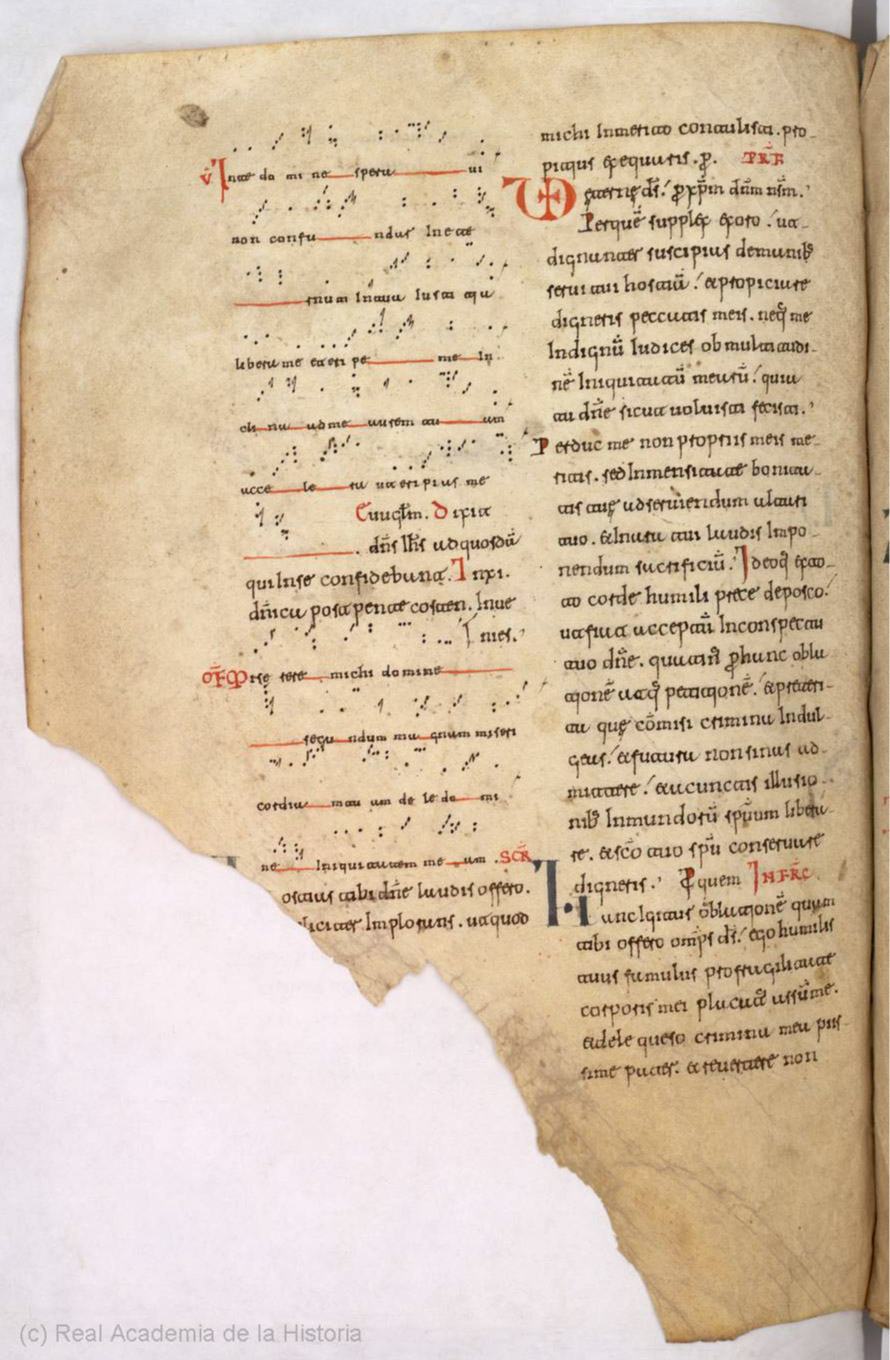 V In te do mi ne spera vi
non confu ndar In ete
rnum In tua Iusti tia
libera me et eri pe me In
cli na ad me aurem tu am
acce le ra ut eripias me
Euuglm. Dixit
. dns Ihs ad quosdā
qui In se confidebant. In xi.
dnica post pentecosten. Inve
nies.
OF Mise rere michi domine
secu ndum ma gnam miseri
cordia m tu am de le do mi
ne Iniquitatem me am . SCR
ostias tibi dne laudis offero.
liciter Imploraris. ut quod
michi Inmerito contulisti. pro-
pitius exequaris. p. PRF
eterne ds. p xpm dnm nsm.
Per quē supplex exoro. ut
dignanter suscipias de manib
serui tui hostiā. et propiciare
digneris peccatis meis. neq me
Indignū Iudices ob multitudi-
nē Iniquitatū mearū. quia
tu dne sicut uoluisti fecisti.
Perduc me non propriis meis me
ritis. sed Inmensitate bonita-
tis tuę ad seruiendum altari
tuo. et In ara tui laudis Impo-
nendum sacrificiū. Ideoq exto-
to corde humili prece deposco.
ut fiat acceptū In conspectu
tuo dne. quatin pro hunc obla-
tionē atq petitionē. et preteri-
ta quę cōmisi crimina Indul-
geas. et futura non sinas ad-
mittere. et a cunctis illusio-
nib Inmundorū spūum libera-
re. et sco tuo spu conseruare
digneris. Per quem INFRC
Hanc Igitur oblationē quam
tibi offero omps ds. ego humilis
tuus famulus pro fragilitate
corporis mei placatū assume.
et dele queso crimina mea piis-
sime pater. et reuertere non